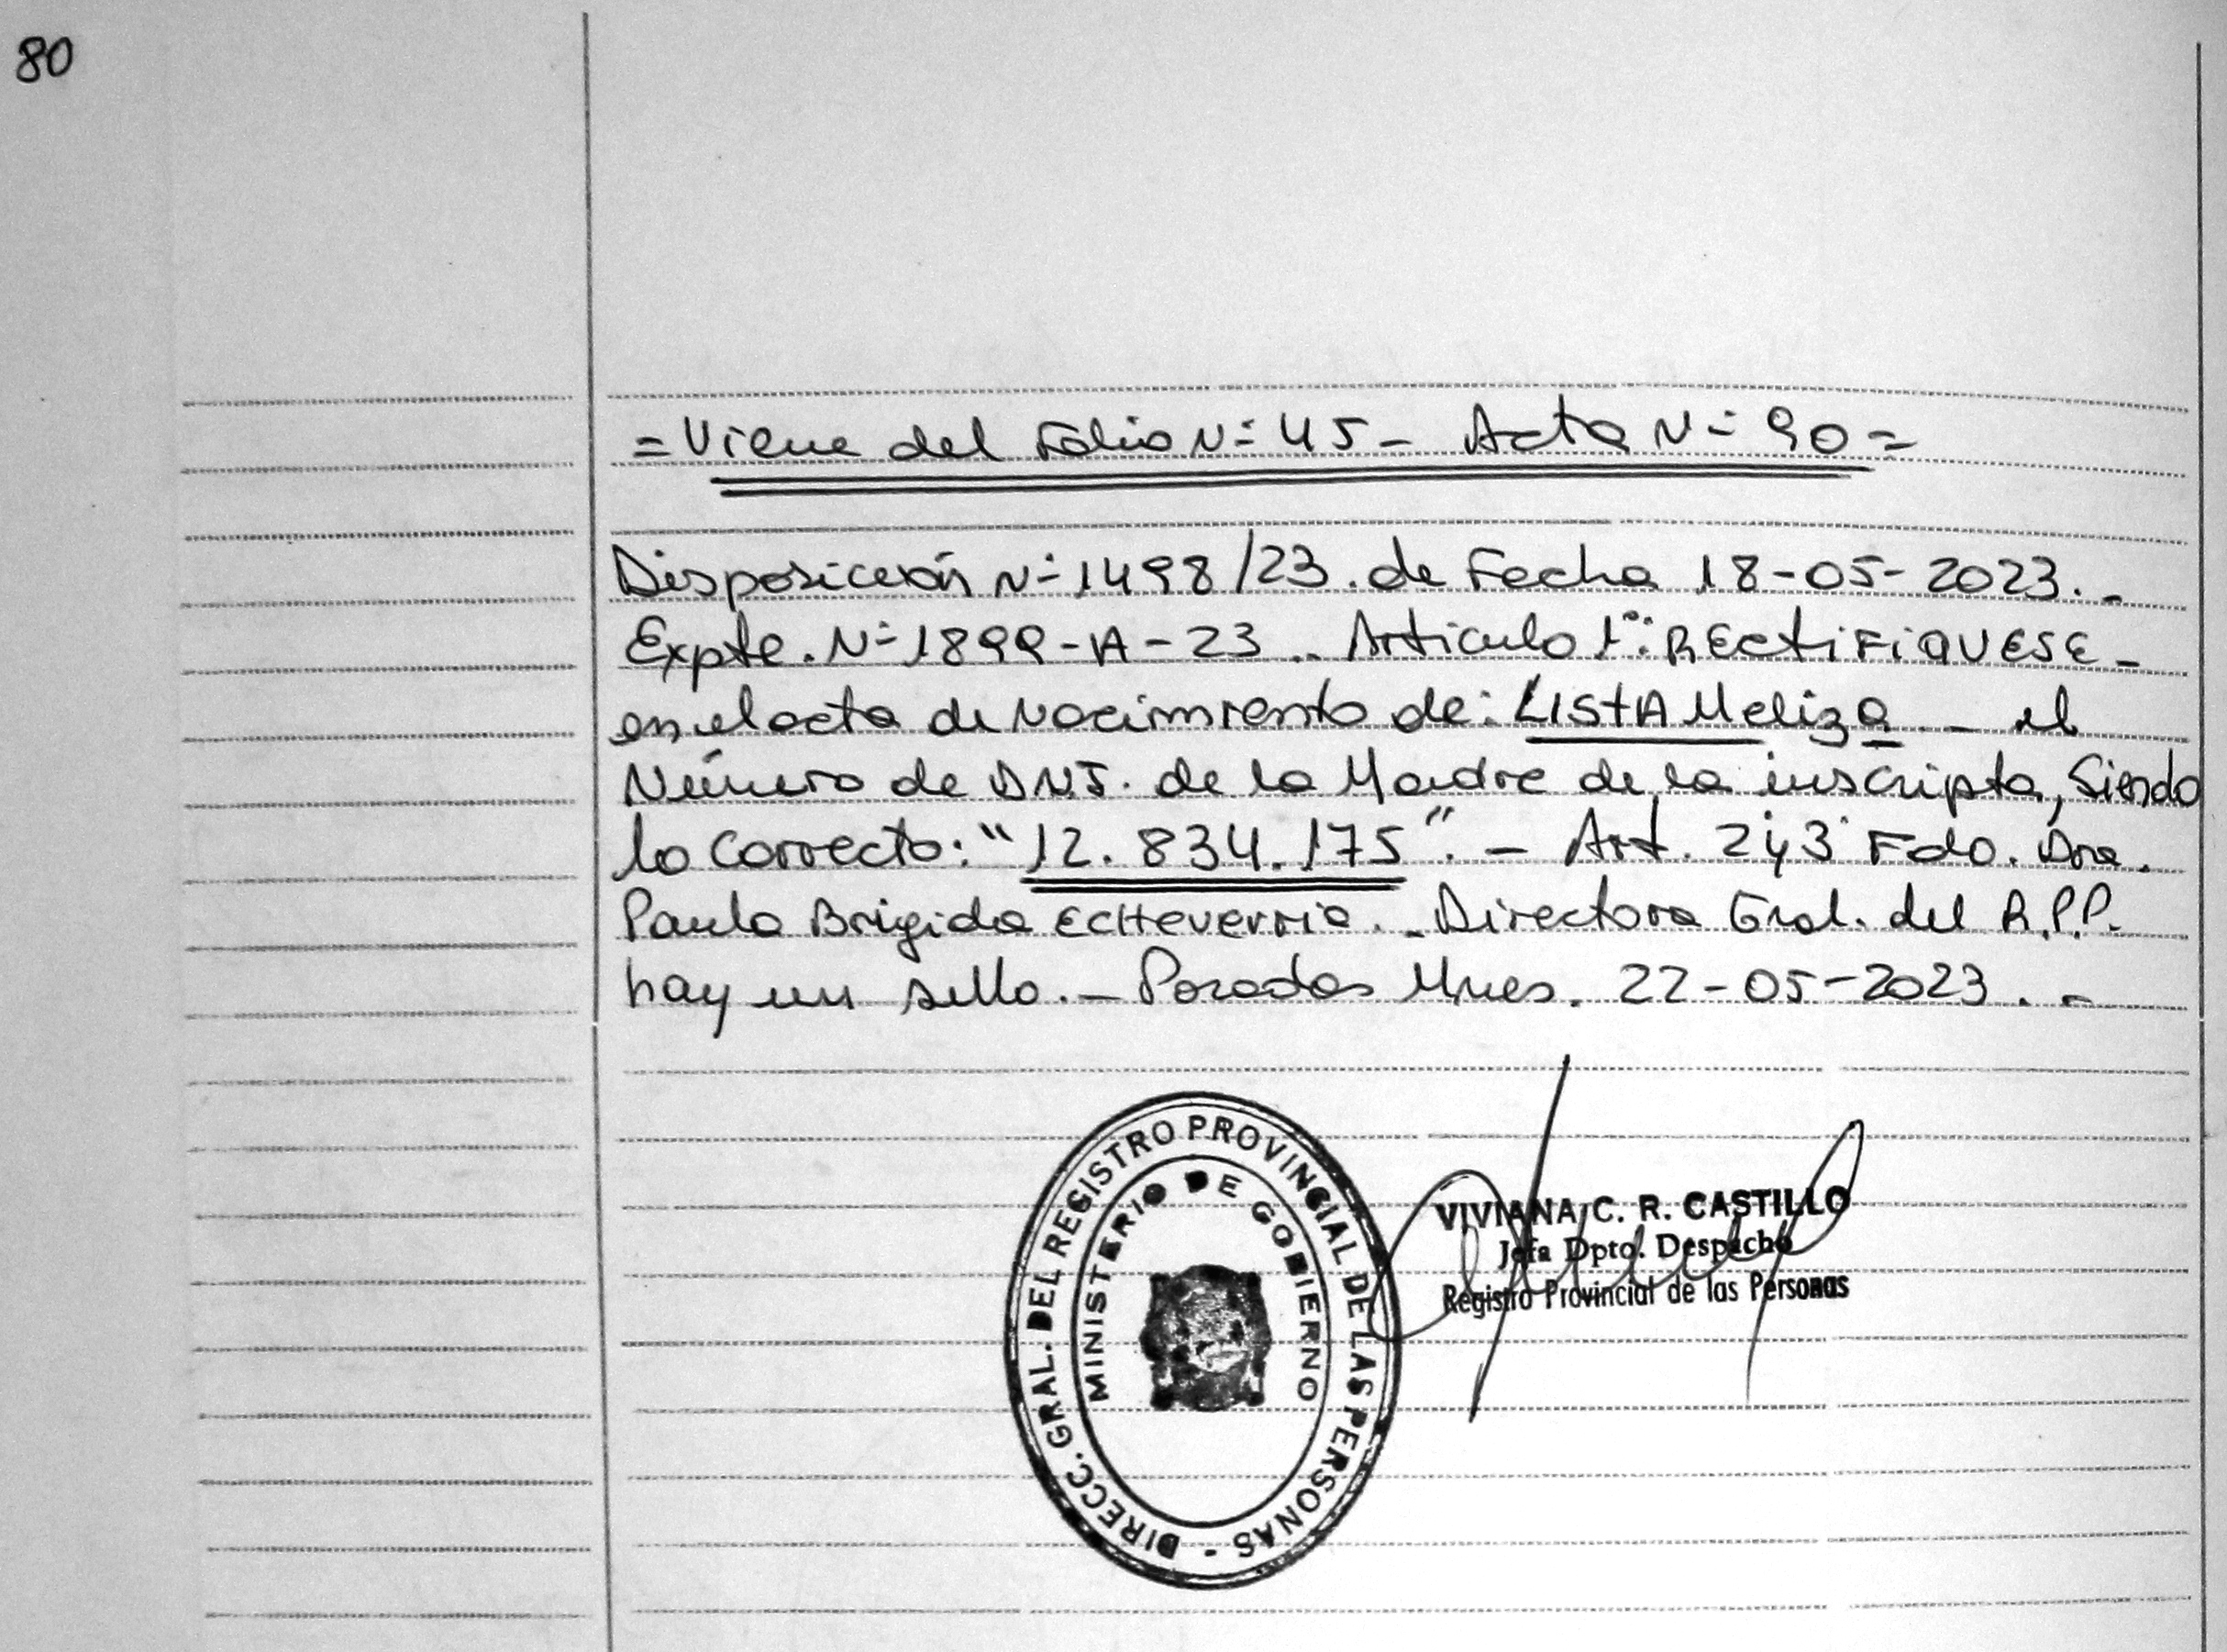 80
= Viene del Folio N= 45 - Acta N= 90 =
Disposición N= 1498/23. de Fecha 18-05-2023. -
Expte. N= 1899-A-23.. Articulo 1°: RECtiFiQUESE -
en el acta de Nacimiento de: LIStA Meliza - el
Número de DNI. de la Madre de la inscripta, Siendo
lo Correcto: "12.834.175". - Art. 2 y 3° Fdo. Dra.
Paula Brigida ECHeverria. - Directora Gral. del R.P.P.
hay un sello. - Posadas Mnes. 22-05-2023. -
DIRECC. GRAL. DEL REGISTRO PROVINCIAL DE LAS PERSONAS -
MINISTERIO DE GOBIERNO
VIVIANA C. R. CASTILLO
Jefa Dpto. Despacho
Registro Provincial de las Personas